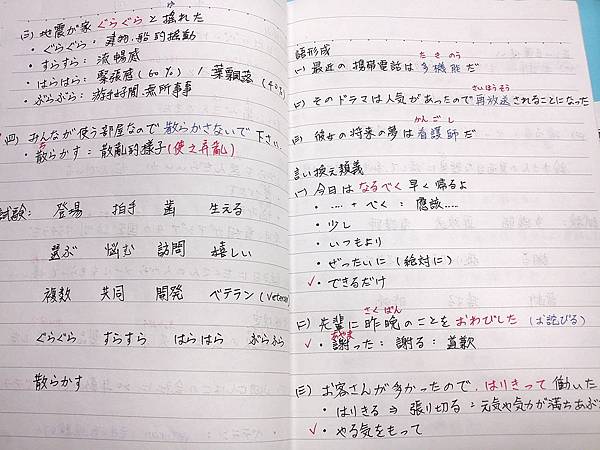 ゆ
(三) 地震が家ぐらぐらと揺れた
・ぐらぐら：建物・般的搖動
・すらすら：流暢感
・はらはら：緊張感(60%) / 葉飄落(40%)
・ぶらぶら：游手好閒.無所事事
(四) みんなが使う部屋なので散らかさないで下さい.
ち
・散らかす：散亂的樣子(使之弄亂)
試験： 登場 拍手 歯 生える
選ぶ 悩む 訪問 嬉しい
複数 共同 開発 ベテラン(veteran
ぐらぐら すらすら はらはら ぶらぶら
散らかす
語形成
たきのう
(一) 最近の携帯電話は多機能だ
さいほうそう
(二) そのドラマは人気があったので再放送されることになった
かんごし
(三) 彼女の将来の夢は看護師だ
言い換え類義
(一) 今日はなるべく早く帰るよ
・‥‥ + べく：應該‥‥
・少し
・いつもより
・ぜったいに(絶対に)
✓・できるだけ
さくばん
(二) 先輩に昨晩のことをおわびした (お詫びる)
あやま
✓・謝った：謝る：道歉
(三) お客さんが多かったので、はりきって働いた
・はりきる ⇒ 張り切る：元気や気力が満ちあふ
✓・やる気をもって